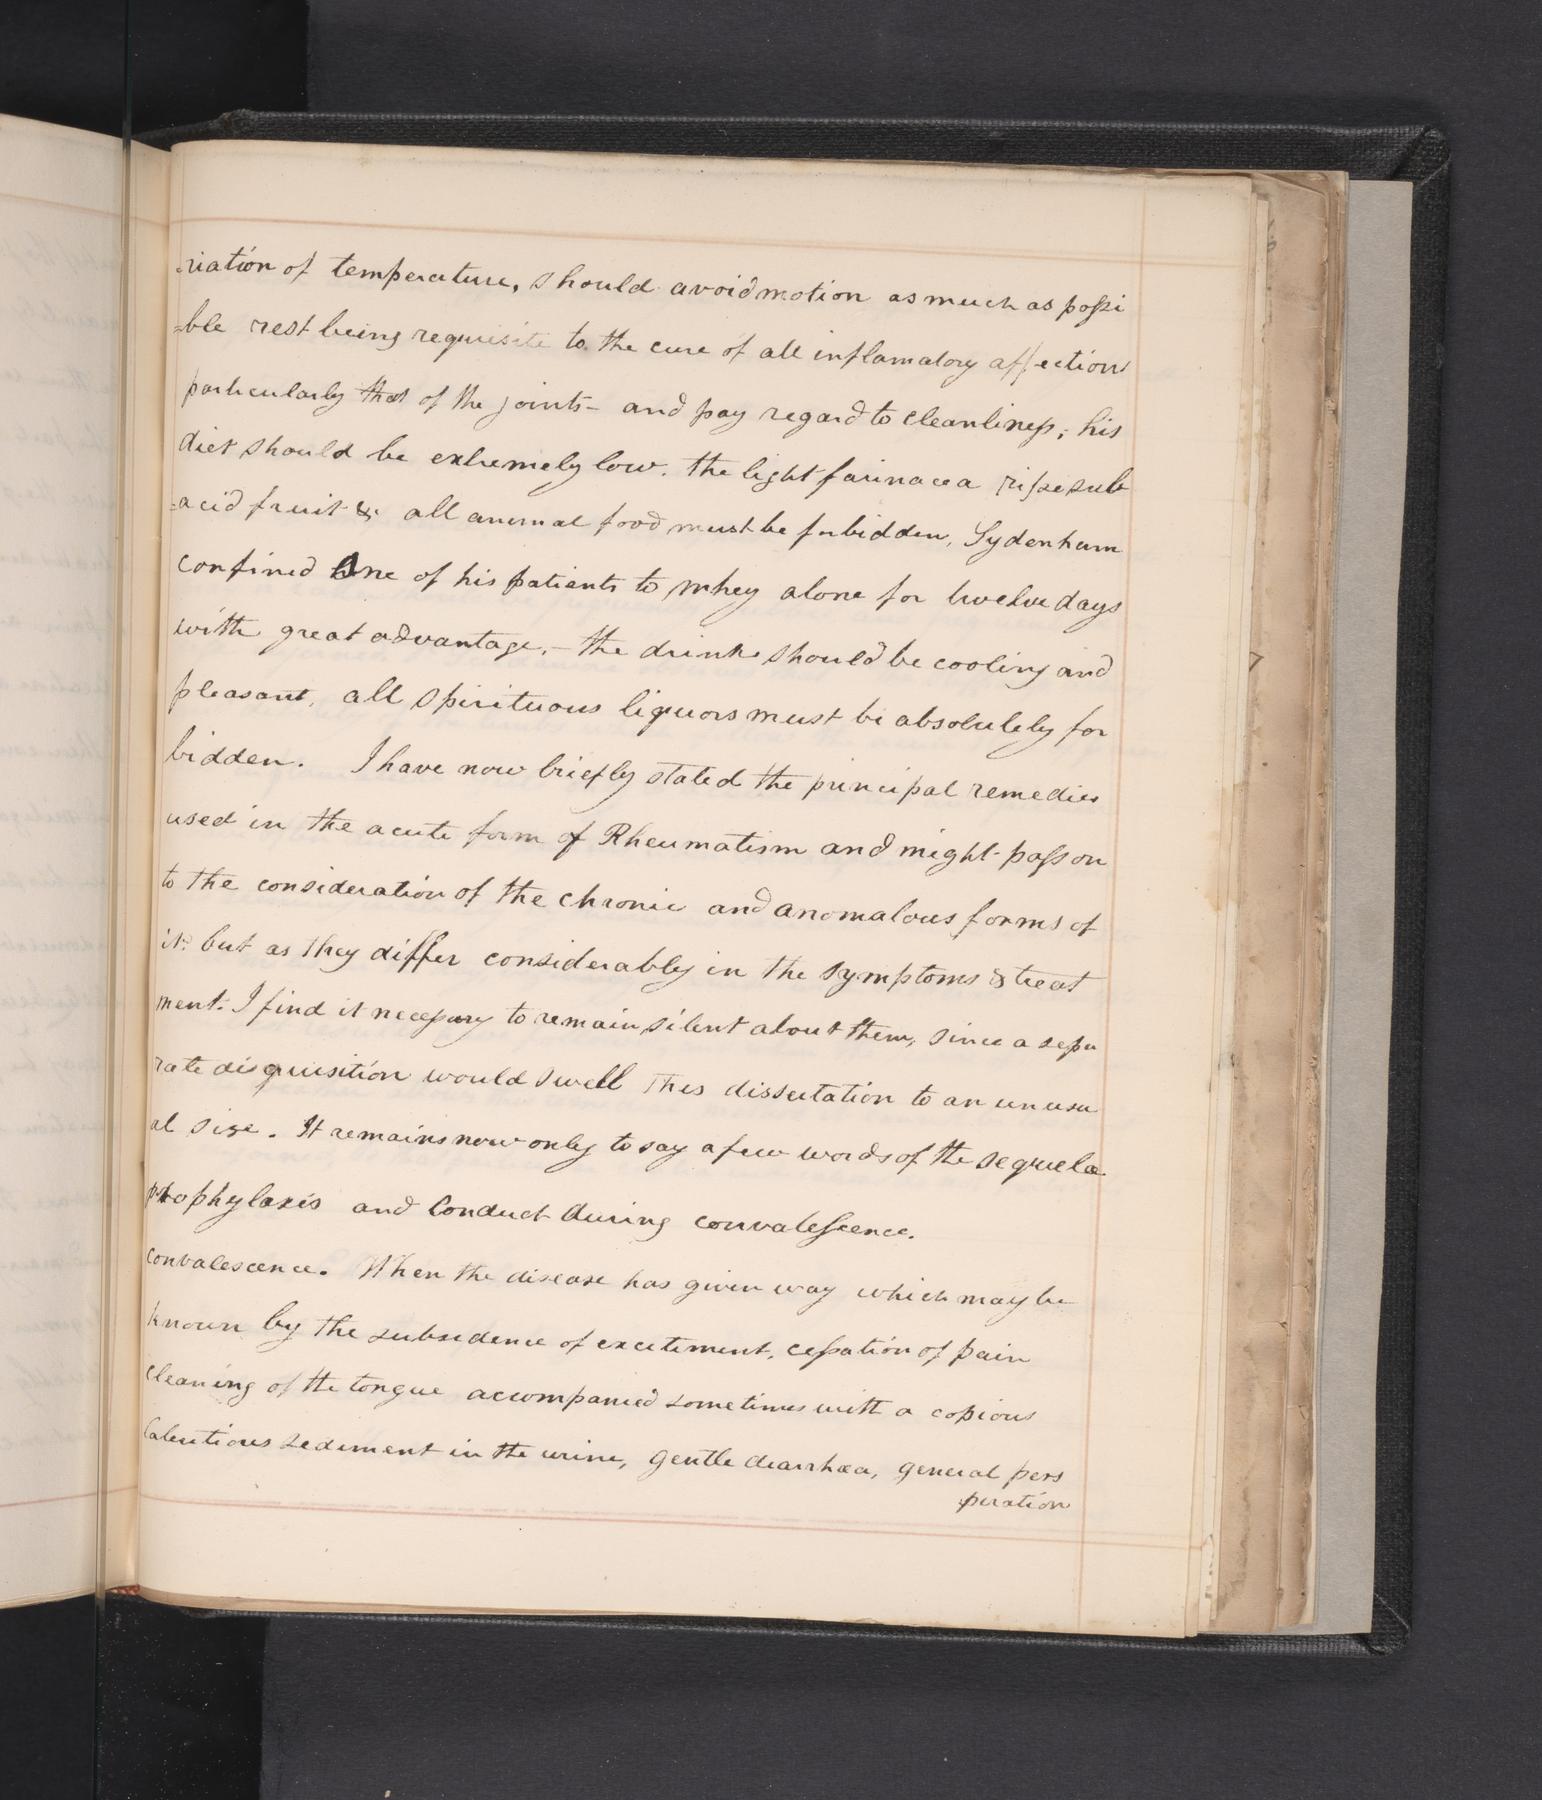 -riation of temperature, should avoid motion as much as possi
=ble rest being requisite to the cure of all inflamatory affections
particularly that of the joints - and pay regard to cleanliness; his
diet should be extremely low. the light farinacea ripe sub
=acid fruit &c all animal food must be forbidden, Sydenham
confined One of his patients to whey alone for twelve days
with great advantage, - the drinks should be cooling and
pleasant, all spirituous liquors must be absolutely for
bidden. I have now briefly stated the principal remedies
used in the acute form of Rheumatism and might pass on
to the consideration of the chronic and anomalous forms of
it: but as they differ considerably in the symptoms & treat
ment. I find it necessary to remain silent about them, since a sepa
rate disquisition would swell this dissertation to an unusu
al size. It remains now only to say a few words of the sequelae
prophylaxis and Conduct during convalescence.
convalescence. When the disease has given way which may be
known by the subsidence of excitement, cessation of pain
cleaning of the tongue accompanied sometimes with a copious
lateritious sediment in the urine, gentle diarrhœa, general pers
piration